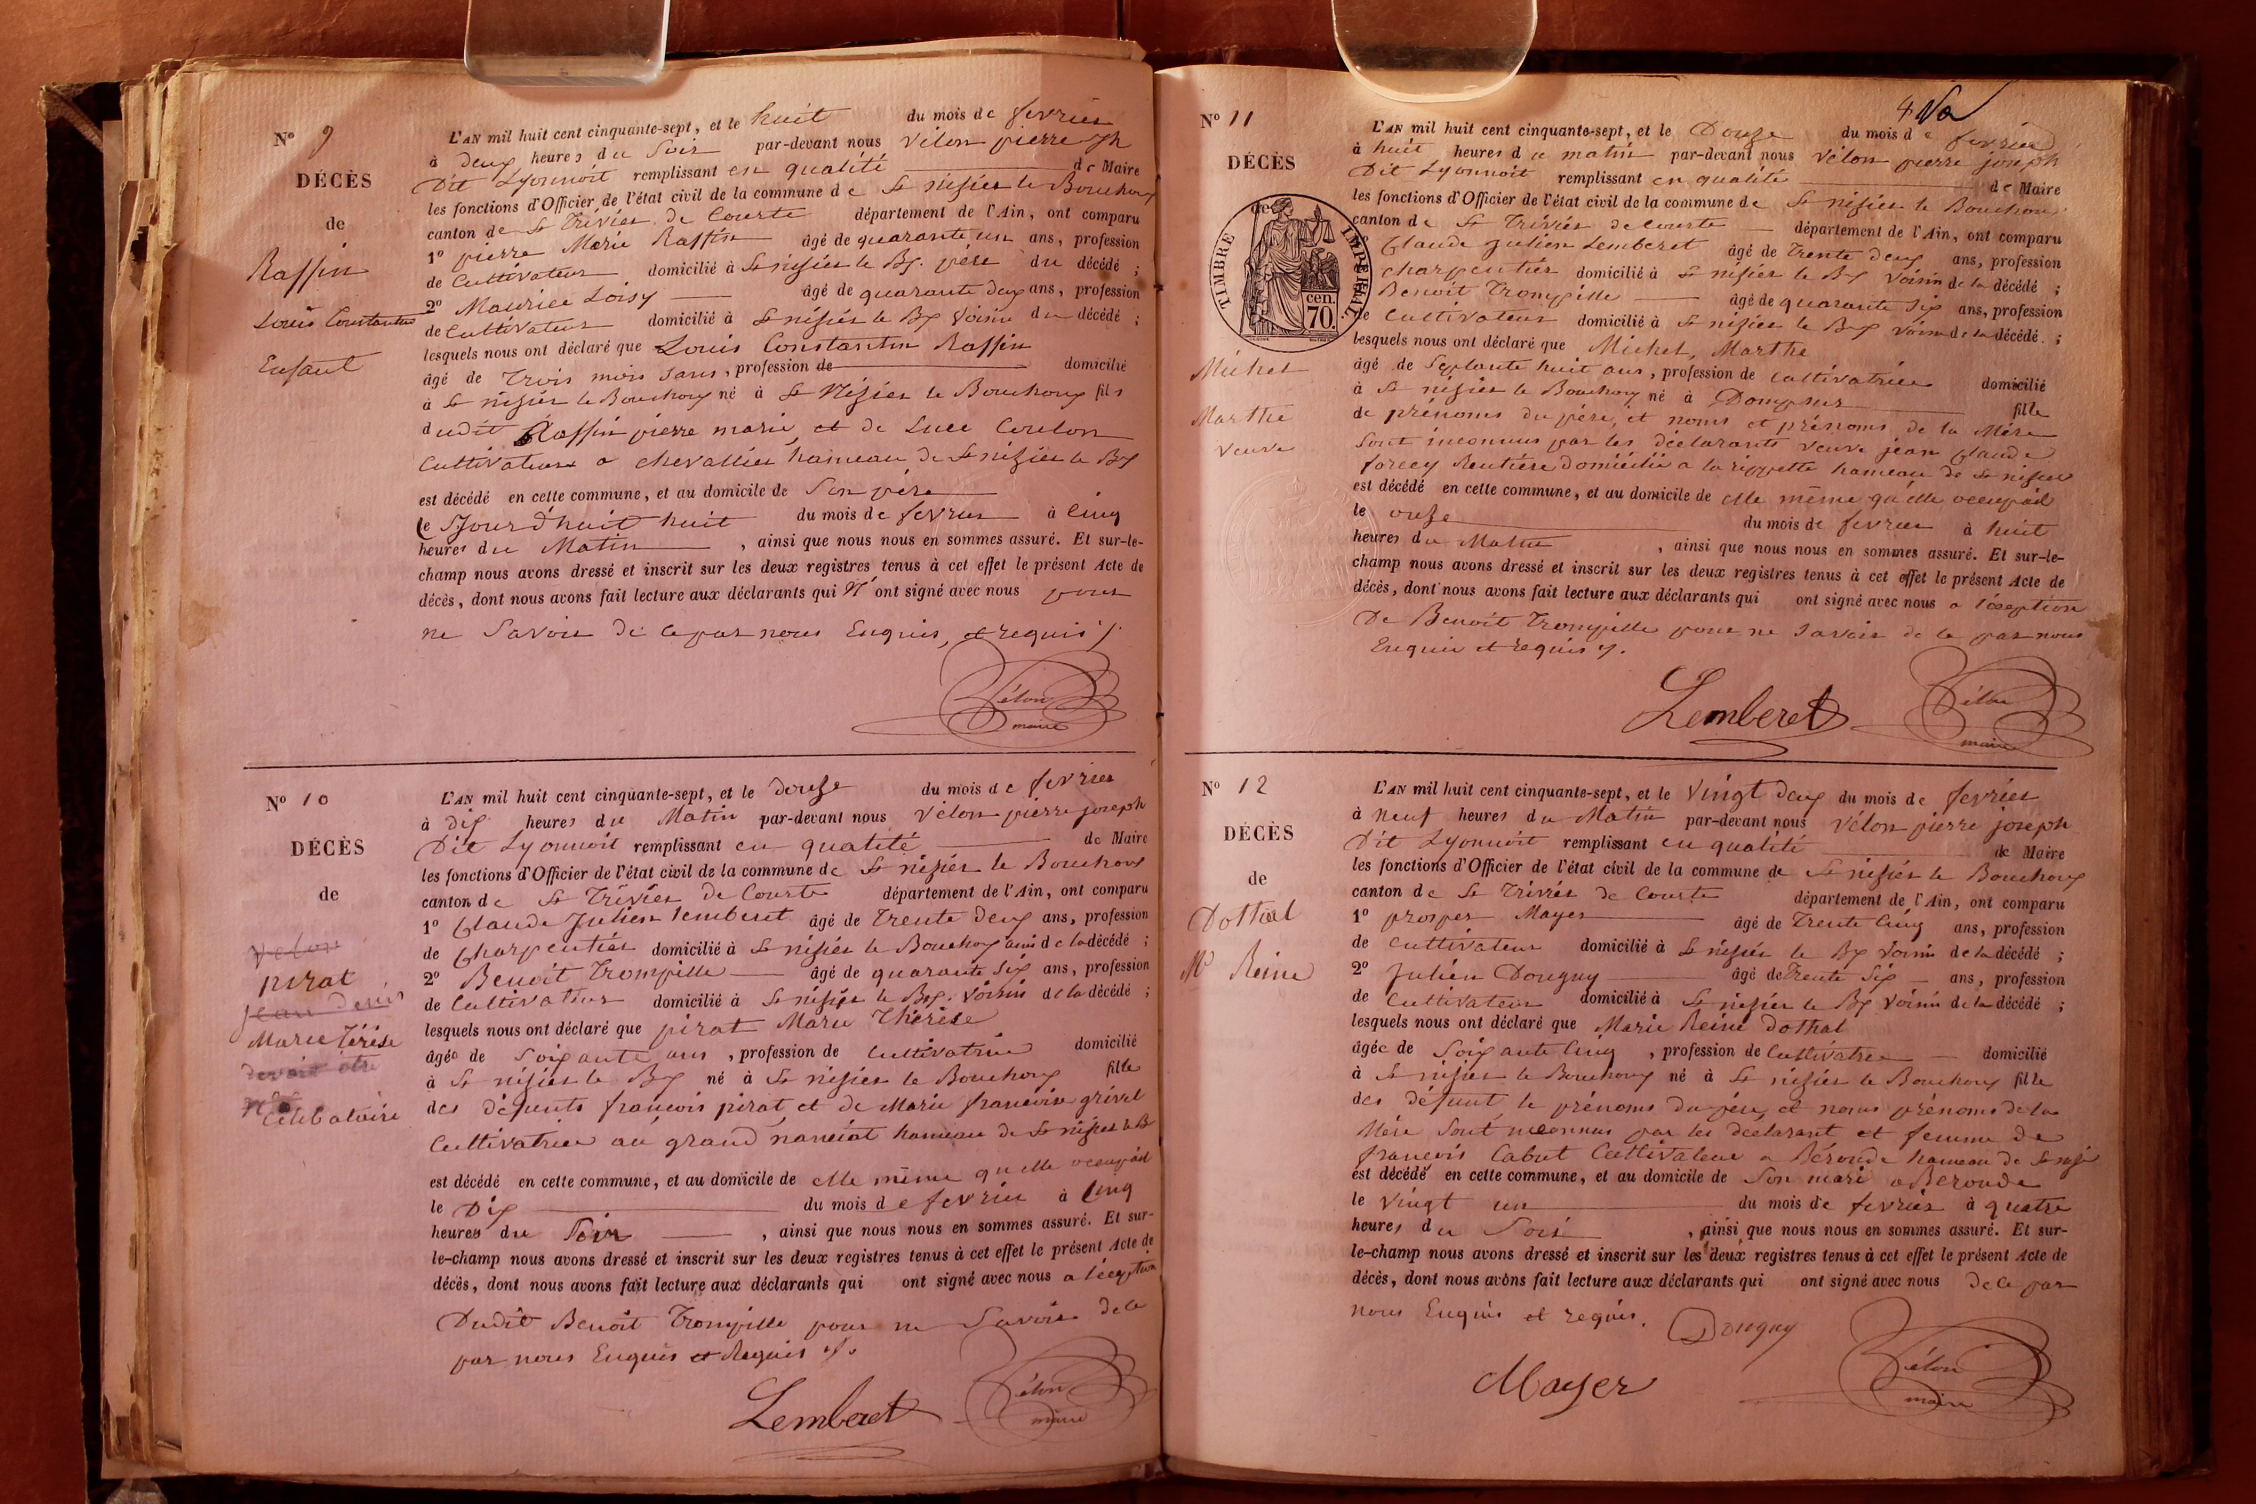 N° 9
DÉCÈS
de
Raffin
Louis Constantin
Enfant
L'AN mil huit cent cinquante-sept, et le huit du mois de fevrier
à deux heures du Soir par-devant nous Vélon pierre jh
Dit Lyonnoit remplissant en qualité de Maire
les fonctions d'Officier de l'état civil de la commune de St nisier le Bouchoux
canton de St Trivier de Courte département de l'Ain, ont comparu
1° pierre Marie Raffin âgé de quarante un ans, profession
de Cultivateur domicilié à St nisier le Bx. père du décédé ;
2° Maurice Loisy âgé de quarante deux ans, profession
de Cultivateur domicilié à St nisier le Bx Voisin du décédé ;
lesquels nous ont déclaré que Louis Constantin Raffin
âgé de Trois mois sans, profession de domicilié
à St nisier le Bouchoux né à St Nisier le Bouchoux fils
dudit Raffin pierre marie et de Luce Coulon
Cultivateurs a chevallier hameau de St nisier le Bx
est décédé en cette commune, et au domicile de Son père
le Sjourd'huit huit du mois de fevrier à Cinq
heures du Matin , ainsi que nous nous en sommes assuré. Et sur-le-
champ nous avons dressé et inscrit sur les deux registres tenus à cet effet le présent Acte de
décès, dont nous avons fait lecture aux déclarants qui n' ont signé avec nous pour
ne Savoir de ce par nous Enquis, et requis
Vélon
maire
N° 10
DÉCÈS
de
Velon
pirat
Jean denis
Marie Térése
devait etre
Célibataire
L'AN mil huit cent cinquante-sept, et le douze du mois de fevrier
à dix heures du Matin par-devant nous Vélon pierre joseph
Dit Lyonnoit remplissant en qualité de Maire
les fonctions d'Officier de l'état civil de la commune de St nisier le Bouchoux
canton de St Trivier de Courte département de l'Ain, ont comparu
1° Claude Julien Lemberet âgé de Trente deux ans, profession
de Charpentier domicilié à St nisier le Bouchoux ami de la décédé ;
2° Benoit Trompille âgé de quarante Six ans, profession
de Cultivateur domicilié à St nisier le Bx. Voisin de la décédé ;
lesquels nous ont déclaré que pirat Marie Thérèse
âgée de Soixante ans , profession de Cultivatrice domicilié
à St nisier le Bx né à St nisier le Bouchoux fille
des défunts francois pirat et de Marie francoise grivel
Cultivatrice au grand nanciat hameau de St nisier le B
est décédé en cette commune, et au domicile de elle même qu'elle occupait
le Dix du mois de fevrier à Cinq
heures du Soir , ainsi que nous nous en sommes assuré. Et sur-
le-champ nous avons dressé et inscrit sur les deux registres tenus à cet effet le présent Acte de
décès, dont nous avons fait lecture aux déclarants qui ont signé avec nous a léception
Dudit Benoit Trompille pour ne Savoir de ce
par nous Enquis et Requis
Lemberet
Vélon
maire
4
N° 11
DÉCÈS
de
TIMBRE IMPERIAL
70. cen.
Michel
Marthe
Veuve
L'AN mil huit cent cinquante-sept, et le Douze du mois de fevrier
à huit heures du matin par-devant nous Vélon pierre joseph
Dit Lyonnoit remplissant en qualité de Maire
les fonctions d'Officier de l'état civil de la commune de St nisier le Bouchoux
canton de St Trivier de Courte département de l'Ain, ont comparu
Claude Julien Lemberet âgé de Trente deux ans, profession
charpentier domicilié à St nisier le Bx Voisin de la décédé ;
Benoit Trompille âgé de quarante Six ans, profession
de Cultivateur domicilié à St nisier le Bx Voisin de la décédé ;
lesquels nous ont déclaré que Michel, Marthe
âgé de Septante huit ans, profession de Cultivatrice domicilié
à St nisier le Bouchoux né à Dompsur fille
de prénoms du père, et noms et prénoms de la Mère
Sont inconnus par les déclarants veuve jean Claude
forrey Rentière domiciliée a la rippette hameau de St nisier
est décédé en cette commune, et au domicile de elle même qu'elle occupait
le onze du mois de fevrier à huit
heures du Matin , ainsi que nous nous en sommes assuré. Et sur-le-
champ nous avons dressé et inscrit sur les deux registres tenus à cet effet le présent Acte de
décès, dont nous avons fait lecture aux déclarants qui ont signé avec nous a léception
De Benoit Trompille pour ne Savoir de ce par nous
Enquis et requis
Lemberet
Vélon
maire
N° 12
DÉCÈS
de
Dothal
Mie Reine
L'AN mil huit cent cinquante-sept, et le Vingt deux du mois de fevrier
à Neuf heures du Matin par-devant nous Vélon pierre joseph
Dit Lyonnoit remplissant en qualité de Maire
les fonctions d'Officier de l'état civil de la commune de St nisier le Bouchoux
canton de St Trivier de Courte département de l'Ain, ont comparu
1° prosper Mayer âgé de Trente Cinq ans, profession
de Cultivateur domicilié à St nisier le Bx Voisin de la décédé ;
2° Julien Douguy âgé de Trente Six ans, profession
de Cultivateur domicilié à St nisier le Bx Voisin de la décédé ;
lesquels nous ont déclaré que Marie Reine Dothal
âgée de Soixante Cinq , profession de Cultivatrice domicilié
à St nisier le Bouchoux né à St nisier le Bouchoux fille
des défunt, le prénoms du père, et noms prénoms de la
Mère Sont inconnus par les declarant et femme de
francois Cabut Cultivateur a Béroude hameau de St nisier
est décédé en cette commune, et au domicile de Son mari a Beroude
le Vingt un du mois de fevrier à quatre
heures du Soir , ainsi que nous nous en sommes assuré. Et sur-
le-champ nous avons dressé et inscrit sur les deux registres tenus à cet effet le présent Acte de
décès, dont nous avons fait lecture aux déclarants qui ont signé avec nous de ce par
nous Enquis et requis.
Douguy
Mayer
Vélon
maire